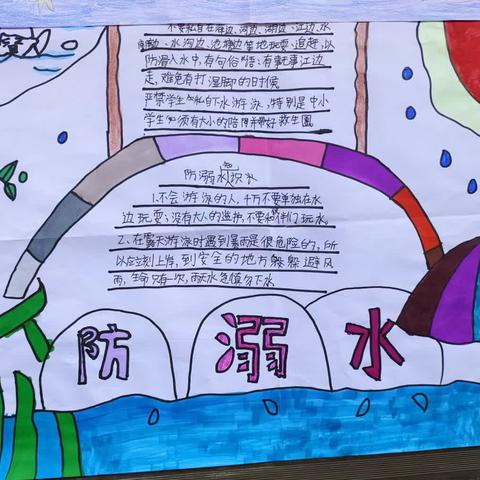 不要私自在海边、河边、湖边、江边、水
边、水沟边、池塘边等地玩耍、追赶,以
防滑入水中,有句俗语:有事无事江边
走,难免有打湿脚的时候
严禁学生私自下水游泳,特别是中小
学生必须有大小的陪同并带好救生圈
防溺水知识
1.不会游泳的人,千万不要单独在水
边玩耍;没有大人的监护,不要和伙伴们玩水。
2、在露天游泳时遇到暴雨是很危险的,所
以应立刻上岸,到安全的地方躲躲避风
雨,生命只有一次,雨天水急慎勿下水
防溺水